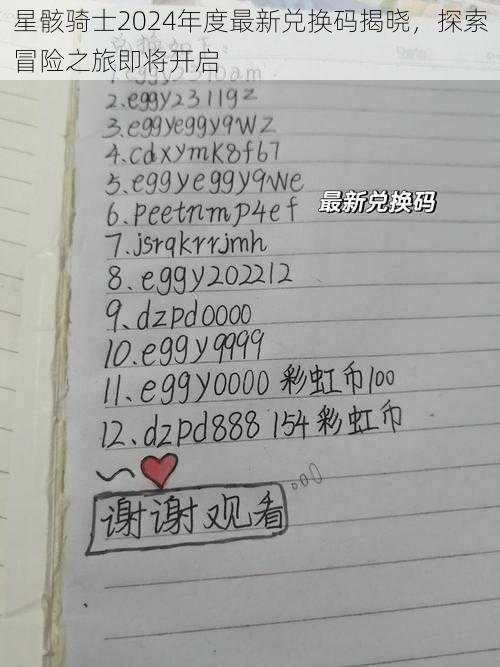 星骸骑士2024年度最新兑换码揭晓，探索
冒险之旅即将开启
2.eggy23119z
3.eggyeggy9wz
4.cdxymk8f67
5.eggyeggy9we
6.peetnmp4ef
最新兑换码
7.jsrqkrrjmh
8.eggy202212
9.dzpd0000
10.eggy9999
11.eggy0000 彩虹币100
12.dzpd888 154彩虹币
谢谢观看